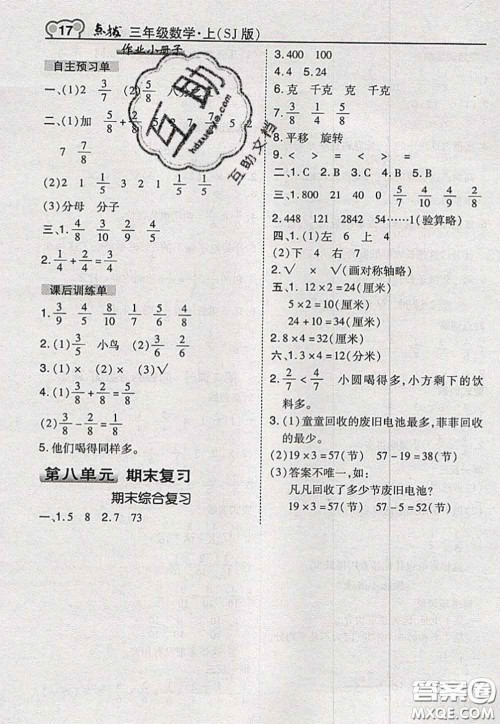 17 点拨 三年级数学·上(SJ版)
作业小册子
自主预习单
一、(1)2 3/7 (2)5/8
二、(1)加 5/8 + 2/8 5 2 7 5/8 2/8
7 7/8
(2)2 1 1/5 3 2 1 1/5 1/5
(3)分母 分子
三、1.4/5 7/8 3/9 5/7
2.1/4 + 2/4 = 3/4
课后训练单
一、3/9 4/8 8/10 1/5 4/7
二、2.(1)3/5 小鸟 (2)4/5
3.(1)× (2)× (3)√
4.(1)2/8 + 4/8 = 6/8
(2)3/8 - 2/8 = 1/8
5.他们喝得同样多。
第八单元 期末复习
期末综合复习
一、1.5 8 2.7 73
3.400 100 4.□ ○ 5.24
6.克 千克 克 千克
7.3/8 1/4 4/9
8.平移 旋转
9.< > = < > =
二、1.C 2.B 3.C 4.B 5.B
三、1.800 21 40 0 5/7 4/10 4/9 4/5
2.448 121 2842 54……1(验算略)
四、1.(1)左 6 上 4
(2)下 4 右 7
2.√ × √ (画对称轴略)
五、1.6×4=24(厘米)
5×2=10(厘米)
24+10=34(厘米)
六、1.8×4=32(厘米)
2.2/7 < 4/7 小圆喝得多,小方剩下的饮
料多。
3.(1)童童回收的废旧电池最多,菲菲回收
的最少。
(2)19×3=57(节) 57-5=52(节)
(3)答案不唯一,如:
凡凡回收了多少节废旧电池?
19×3=57(节) 57-5=52(节)
互助
hdzuoye.com
互助文档
答案圈
MXQE.COM